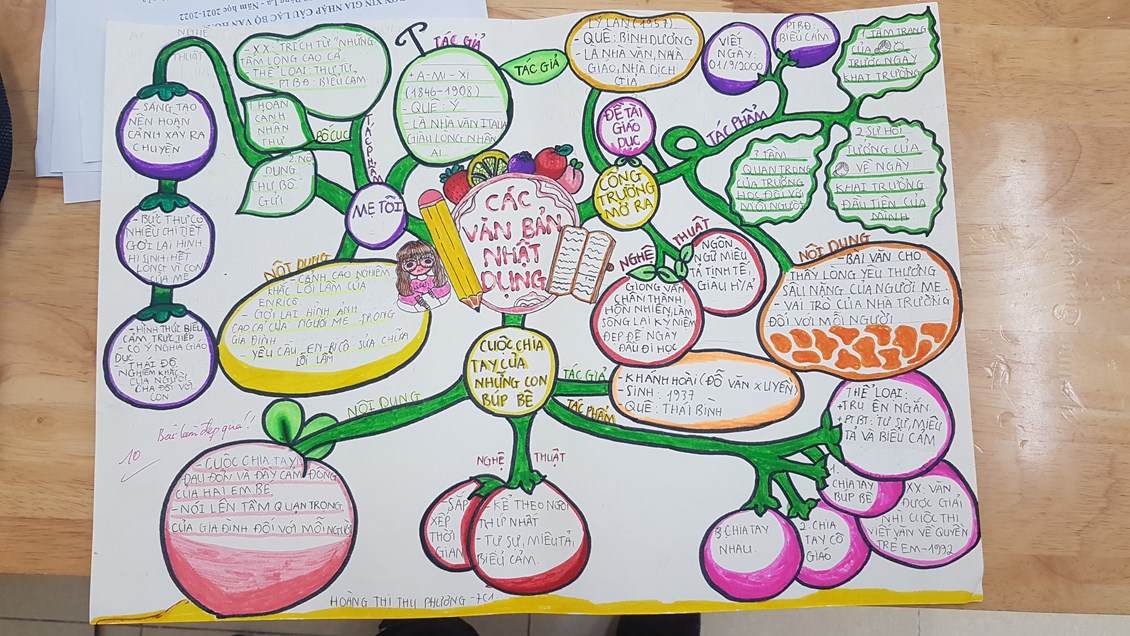 ĐƠN XIN GIA NHẬP CÂU LẠC BỘ VĂN
Năm học 2021-2022
CÁC
VĂN BẢN
NHẬT
DỤNG
MẸ TÔI
TÁC GIẢ
+ A-MI-XI
(1846-1908)
- QUÊ: Ý
- LÀ NHÀ VĂN ITALIA
GIÀU LÒNG NHÂN
ÁI
TÁC PHẨM
- XX: TRÍCH TỪ "NHỮNG
TẤM LÒNG CAO CẢ
THỂ LOẠI: THƯ TỪ,
PTBĐ: BIỂU CẢM
BỐ CỤC
1. HOÀN
CẢNH
NHẬN
THƯ
2. NỘI
DUNG
THƯ BỐ
GỬI
NGHỆ
THUẬT
- SÁNG TẠO
NÊN HOÀN
CẢNH XẢY RA
CHUYỆN
- BỨC THƯ CÓ
NHIỀU CHI TIẾT
GỢI LẠI HÌNH
HI SINH, HẾT
LÒNG VÌ CON
CỦA MẸ
- HÌNH THỨC BIỂU
CẢM TRỰC TIẾP
- CÓ Ý NGHĨA GIÁO
DỤC
THÁI ĐỘ
NGHIÊM KHẮC
CỦA NGƯỜI
CHA ĐỐI VỚI
CON
NỘI DUNG
- CẢNH CÁO NGHIÊM
KHẮC LỖI LẦM CỦA
ENRICÔ
- GỢI LẠI HÌNH ẢNH
CAO CẢ CỦA NGƯỜI MẸ TRONG
GIA ĐÌNH
- YÊU CẦU EN-RI-CÔ SỬA CHỮA
LỖI LẦM
CỔNG
TRƯỜNG
MỞ RA
ĐỀ TÀI
GIÁO
DỤC
TÁC GIẢ
LÝ LAN (1957)
- QUÊ: BÌNH DƯƠNG
- LÀ NHÀ VĂN, NHÀ
GIÁO, NHÀ DỊCH
GIẢ
TÁC PHẨM
VIẾT
NGÀY
01/9/2000
PTBĐ:
BIỂU CẢM
1. TÂM TRẠNG
CỦA
TRƯỚC NGÀY
KHAI TRƯỜNG
2. SỰ HỒI
TƯỞNG CỦA
VỀ NGÀY
KHAI TRƯỜNG
ĐẦU TIÊN CỦA
MÌNH
3. TẦM
QUAN TRỌNG
CỦA TRƯỜNG
HỌC ĐỐI VỚI
MỖI NGƯỜI
NGHỆ THUẬT
GIỌNG VĂN
CHÂN THÀNH,
HỒN NHIÊN, LÀM
SỐNG LẠI KỶ NIỆM
ĐẸP ĐẼ NGÀY
ĐẦU ĐI HỌC
NGÔN
NGỮ MIÊU
TẢ TINH TẾ,
GIÀU Ý
NỘI DUNG
- BÀI VĂN CHO
THẤY LÒNG YÊU THƯƠNG
SÂU NẶNG CỦA NGƯỜI MẸ
- VAI TRÒ CỦA NHÀ TRƯỜNG
ĐỐI VỚI MỖI NGƯỜI
CUỘC CHIA
TAY CỦA
NHỮNG CON
BÚP BÊ
TÁC GIẢ
- KHÁNH HOÀI (ĐỖ VĂN XUYỀN)
- SINH: 1937
- QUÊ: THÁI BÌNH
TÁC PHẨM
THỂ LOẠI:
+TRUYỆN NGẮN
+PTBT: TỰ SỰ, MIÊU
TẢ VÀ BIỂU CẢM
1.
CHIA TAY
BÚP BÊ
2. CHIA
TAY CÔ
GIÁO
3. CHIA TAY
NHAU.
XX: VĂN
ĐƯỢC GIẢI
NHÌ CUỘC THI
VIẾT VĂN VỀ QUYỀN
TRẺ EM-1992
NGHỆ THUẬT
- SẮP
XẾP
THỜI
GIAN
- KỂ THEO NGÔI
THỨ NHẤT
- TỰ SỰ, MIÊU TẢ,
BIỂU CẢM.
NỘI DUNG
- CUỘC CHIA TAY
ĐAU ĐỚN VÀ ĐẦY CẢM ĐỘNG
CỦA HAI EM BÉ
- NÓI LÊN TẦM QUAN TRỌNG
CỦA GIA ĐÌNH ĐỐI VỚI MỖI NGƯỜI
Bài làm đẹp quá!
10
HOÀNG THỊ THU PHƯƠNG - 7C1